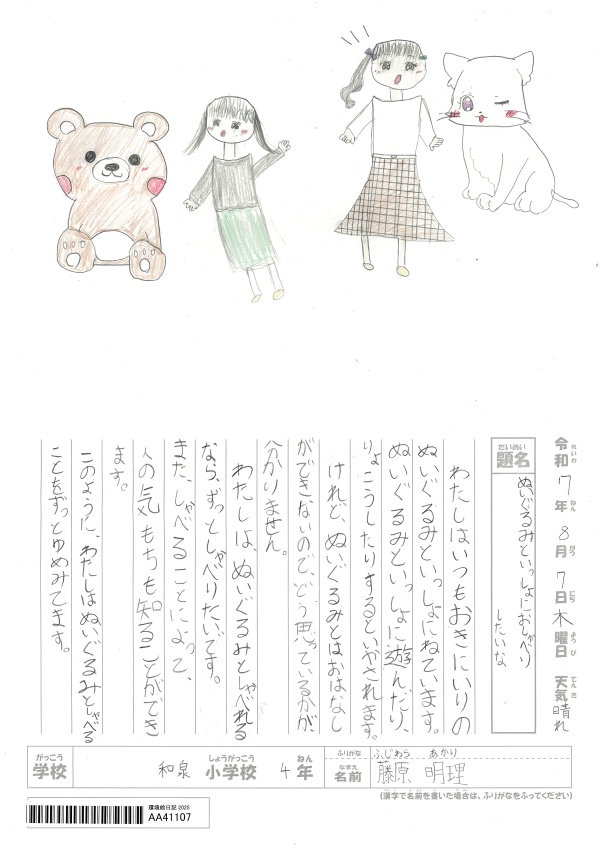 令和7年8月7日木曜日 天気晴れ
れいわ ねん がつ にち ようび てんき
だいめい
題名 ぬいぐるみといっしょにおしゃべり
したいな
わたしはいつもおきにいりの
ぬいぐるみといっしょにねています。
ぬいぐるみといっしょに遊んだり、
りょこうしたりするといやされます。
けれど、ぬいぐるみとはおはなし
ができないので、どう思っているかが、
分かりません。
わたしは、ぬいぐるみとしゃべれる
なら、ずっとしゃべりたいです。
また、しゃべることによって、
人の気もちも知ることができ
ます。
このように、わたしはぬいぐるみとしゃべる
ことをずっとゆめみてます。
がっこう しょうがっこう ねん ふりがな ふじわら あかり
学校 和泉 小学校 4年 なまえ 名前 藤原 明理
(漢字で名前を書いた場合は、ふりがなをふってください)
環境絵日記 2025
AA41107